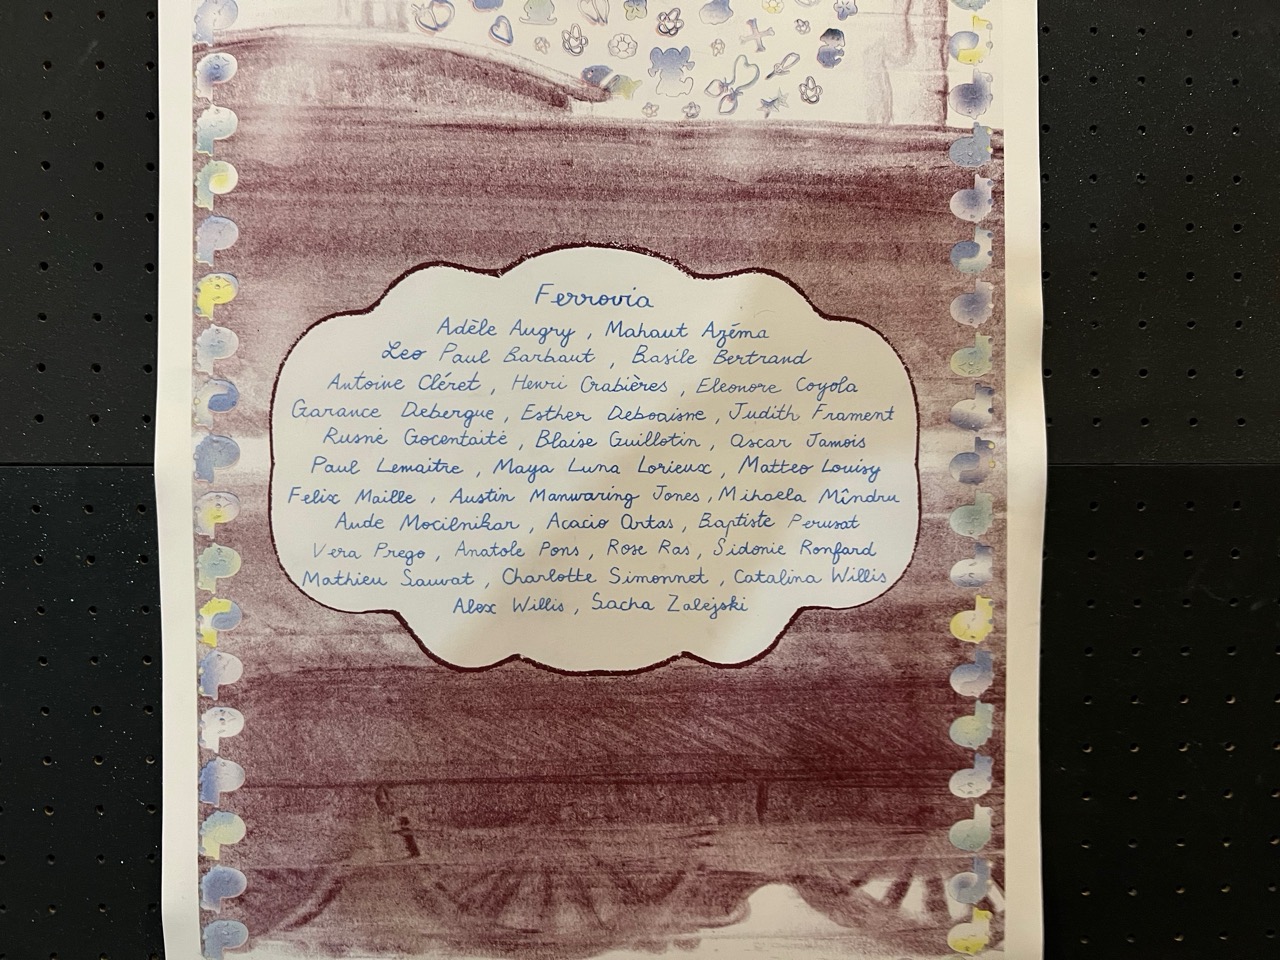 Ferrovia
Adèle Augry , Mahaut Azéma
Leo Paul Barbaut , Basile Bertrand
Antoine Cléret , Henri Crabières , Eleonore Coyola
Garance Debergue , Esther Deboaisne , Judith Frament
Rusnė Gocentaitė , Blaise Guillotin , Oscar Jamois
Paul Lemaitre , Maya Luna Lorieux , Matteo Louisy
Felix Maille , Austin Manwaring Jones , Mihaela Mîndru
Aude Mocilnikar , Acacio Ortas , Baptiste Perusat
Vera Prego , Anatole Pons , Rose Ras , Sidonie Ronfard
Mathieu Sauvat , Charlotte Simonnet , Catalina Willis
Alex Willis , Sacha Zalejski